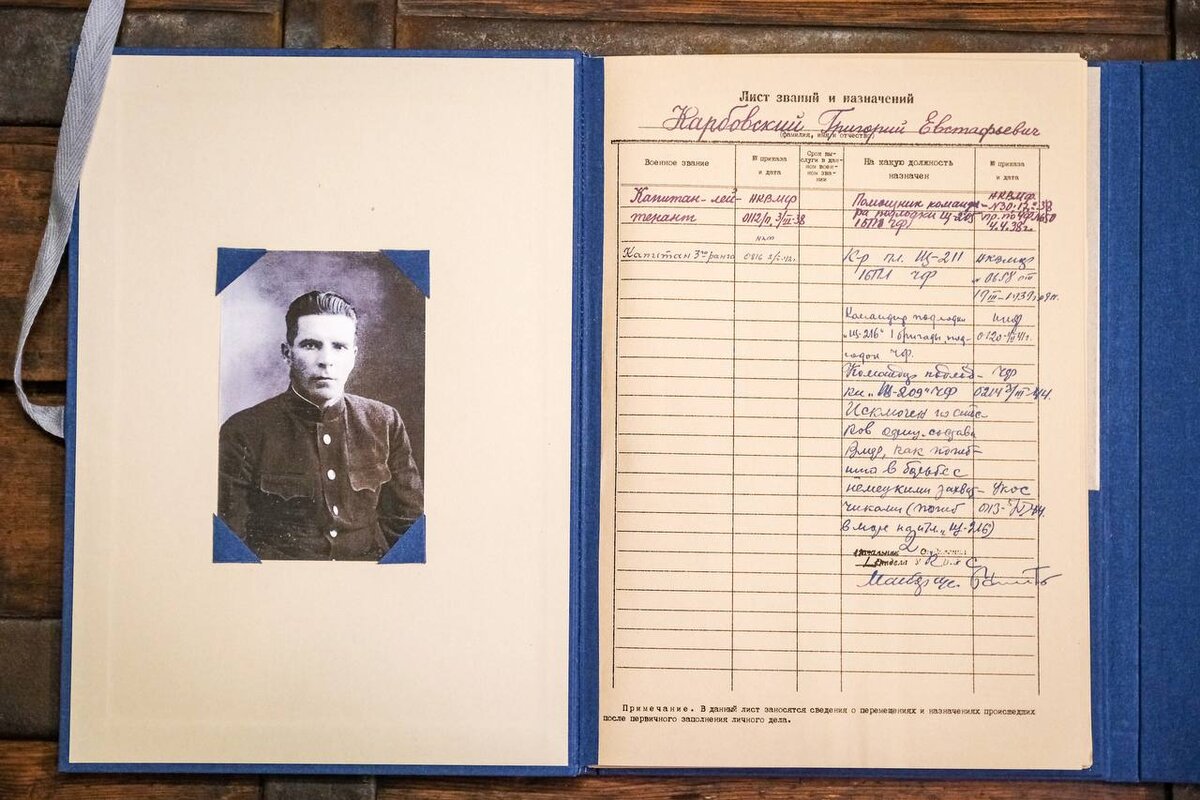 Лист званий и назначений
Карбовский Григорий Евстафьевич
(фамилия, имя и отчество)
Военное звание
№ приказа и дата
Срок выслуги в данном военном звании
На какую должность назначен
№ приказа и дата
Капитан-лей-
тенант
НКВМФ
0112/п 3/III-38
Помощник команди-
ра подлодки Щ-205
НКВМФ
4.4.38г.
Капитан 3го ранга
К-р пл. Щ-211
НКВМФ
ЧФ
Командир подлодки
„Щ-216" 1 бригады под-
лодок ЧФ.
Командир подлод-
ки „Щ-209" ЧФ
ЧФ
Исключен из спис-
ков офиц. состава
ВМФ, как погиб-
ший в борьбе с
немецкими захват-
чиками (погиб
в море на пл. „Щ-216)
начальник
отдела
Примечание. В данный лист заносятся сведения о перемещениях и назначениях происшедших
после первичного заполнения личного дела.